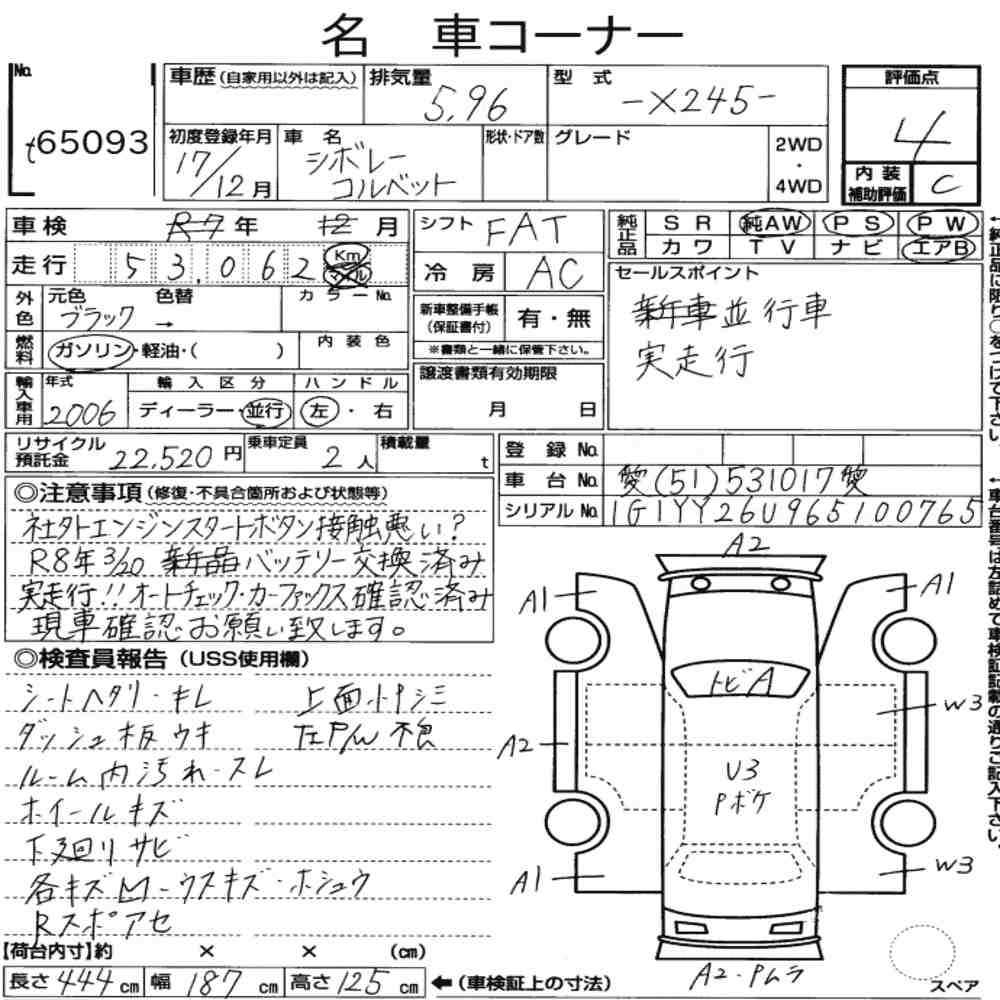 名 車コーナー
No.
t65093
車歴(自家用以外は記入) 排気量 5,96 型 式 -X245-
初度登録年月 17/12月 車 名 シボレー コルベット 形状・ドア数 グレード 2WD ・ 4WD
評価点 4
内 装 補助評価 C
車 検 R7年 12月
走 行 53,062 Km マイル
外色 元色 ブラック 色替 → カラーNo.
燃料 ガソリン・軽油・( ) 内 装 色
輸入車用 年式 2006 輸 入 区 分 ディーラー・並行 ハ ン ド ル 左・右
シフト FAT
冷 房 AC
新車整備手帳(保証書付) 有・無
※書類と一緒に保管下さい。
譲渡書類有効期限
月 日
純正品 S R 純AW P S P W
カ ワ T V ナ ビ エアB
セールスポイント
新車並行車
実走行
←純正品に限り○をつけて下さい。
リサイクル預託金 22,520円 乗車定員 2人 積載量 t
登 録 No.
車 台 No. 愛(51)531017愛
シリアル No. 1G1YY26U965100765
←車台番号は左詰めて車検証記載の通りご記入下さい。
◎注意事項(修復・不具合箇所および状態等)
社外エンジンスタートボタン接触悪い?
R8年3/20 新品バッテリー交換済み
実走行!!オートチェック・カーファックス確認済み
現車確認お願い致します。
◎検査員報告(USS使用欄)
シートヘタリ・キレ 上面小Pシミ
ダッシュ板ウキ 左P/W不良
ルーム内汚れ・スレ
ホイールキズ
下廻りサビ
各キズ凹・ウスキズ・ホシュウ
Rスポアセ
【荷台内寸】約 × × (cm)
長さ 444cm 幅 187cm 高さ 125cm ←(車検証上の寸法)
A2
A1 A1
トビA
W3
A2
U3
Pボケ
A1 W3
A2・Pムラ
スペア